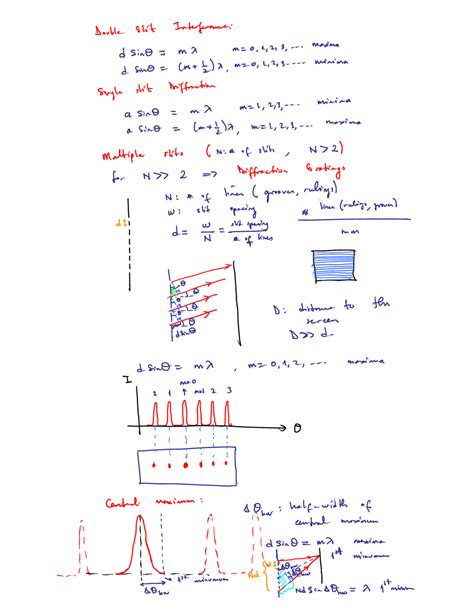 Double Slit Interference:
d sinθ = mλ m=0,1,2,3,---- maxima
d sinθ = (m+1/2)λ, m=0,1,2,3---- minima
Single slit Diffraction
a sinθ = mλ m=1,2,3,---- minima
a sinθ = (m+1/2)λ, m=1,2,3,---- maxima
Multiple slits (N:# of slits, N>2)
for N>>2 ⇒ Diffraction Gratings
N: # of lines (grooves, rulings)
W: slit spacing
# lines (rulings, grooves)
mm
d = W/N = slit spacing / # of lines
d
θ
θ
θ
θ
d sinθ
D: distance to the
screen
D>>d
d sinθ = mλ, m=0,1,2,---- maxima
I
m=0
2 1 m=1 2 3
θ
Central maximum:
Δθhw: half-width of
central maximum
d sinθ = mλ maxima
1st
minimum
Δθhw
1st minimum
Nd
Δθhw
Nd sinΔθhw = λ 1st minimum